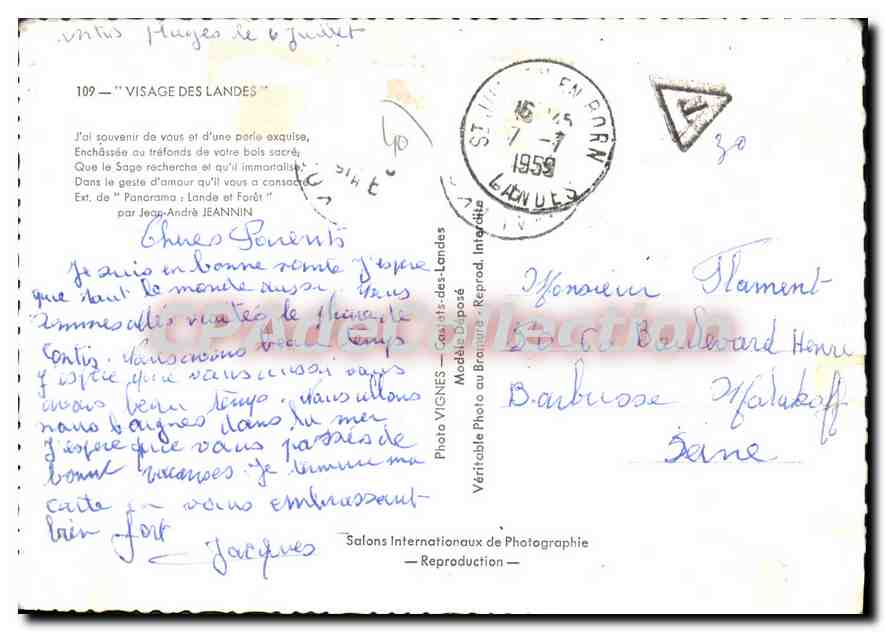 Contis Plages le 6 Juillet
109 — " VISAGE DES LANDES "
J'ai souvenir de vous et d'une perle exquise,
Enchâssée au tréfonds de votre bois sacré,
Que le Sage recherche et qu'il immortalise,
Dans le geste d'amour qu'il vous a consacré
Ext. de " Panorama : Lande et Forêt "
par Jean-André JEANNIN
40
ST JULIEN EN BORN
16 45
7 - 7
1959
LANDES
T
30
Chères Parents
Je suis en bonne santé J'espère
que tout le monde aussi. Nous
sommes allés visités le phare de
Contis. Nous avons beau temps
J'espère que vous aussi vous
avais beau temps. Nous allons
nous baignés dans la mer
J'espère que vous passés de
bonnes vacances. Je termine ma
carte en vous embrassant
bien fort
Jacques
Photo VIGNES — Castets-des-Landes
Modèle Déposé
Véritable Photo au Bromure - Reprod. Interdite
Monsieur Flament
Boulevard Henri
Barbusse Malakoff
Seine
CPAdeCollection
Salons Internationaux de Photographie
— Reproduction —